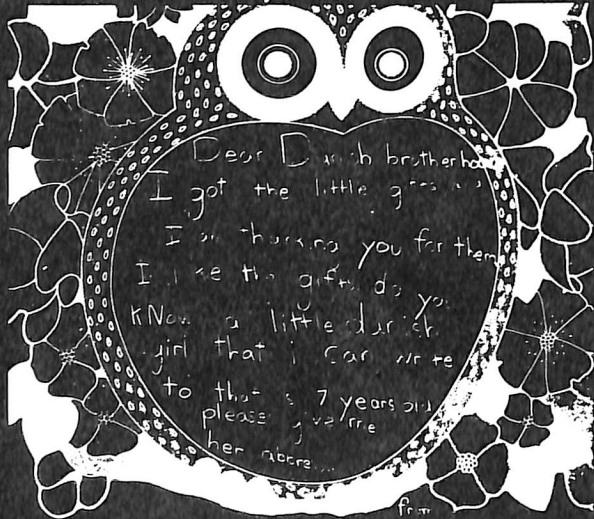 Dear Danish brotherhood
I got the little gifts and
I am thanking you for them
I like the gifts do you
KNow a little danish
girl that i can write
to that is 7 years old
please give me
her
from